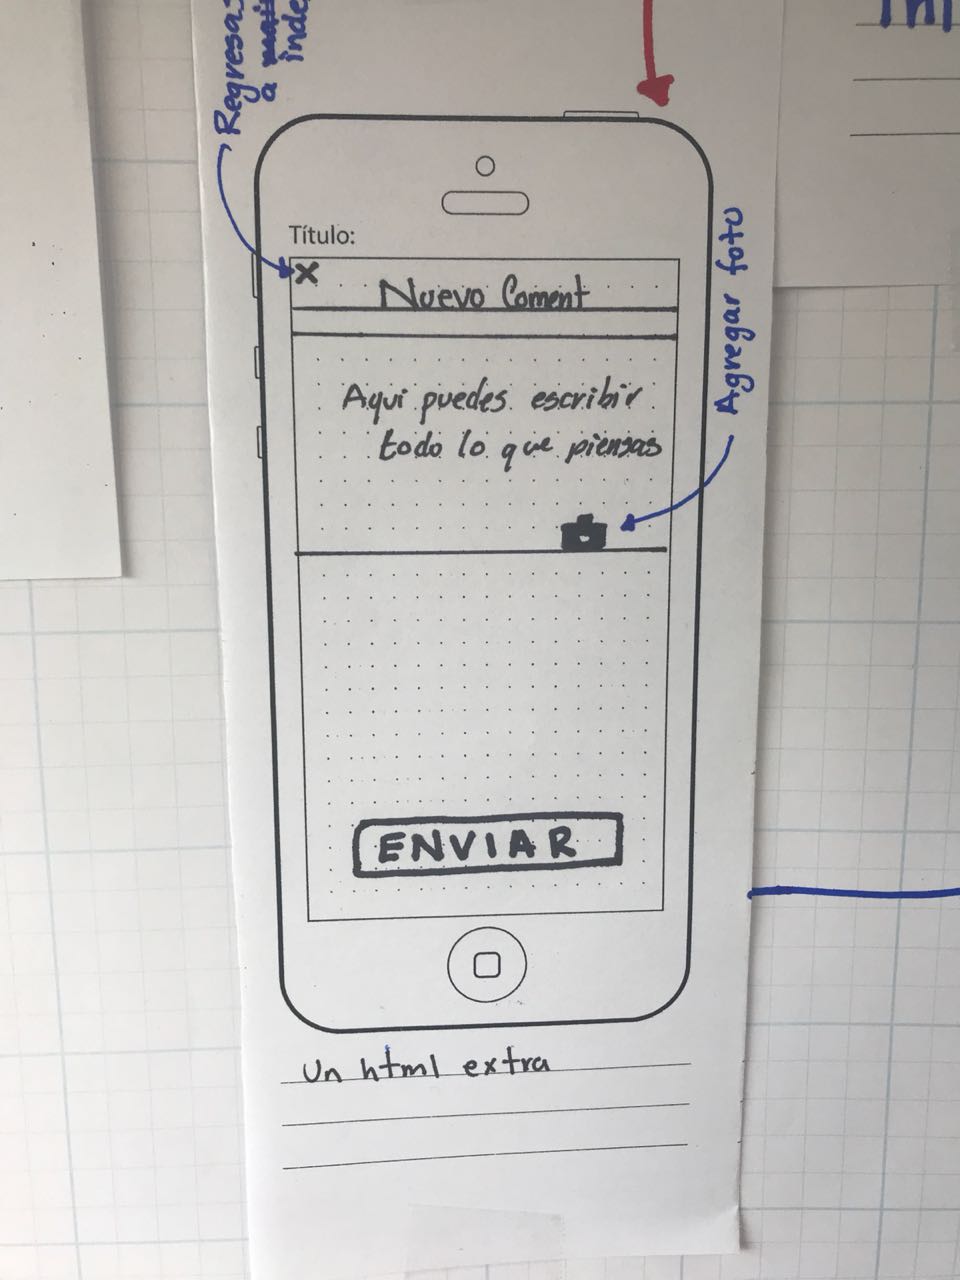 Regresa
a mai
inde
Título:
X
Nuevo Coment
Aqui puedes escribir
todo lo que piensas
Agregar foto
ENVIAR
Un html extra